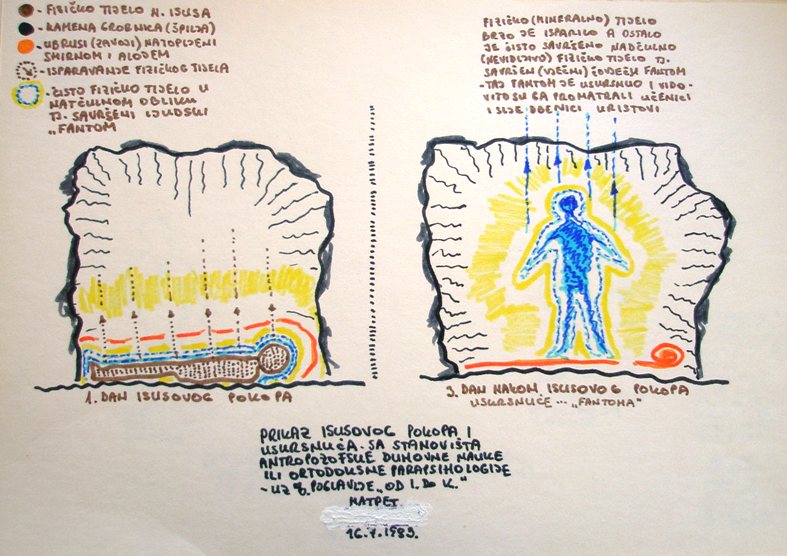 - FIZIČKO TIJELO N. ISUSA
- KAMENA GROBNICA (ŠPILJA)
- UBRUSI (ZAVOJI) NATOPLJENI
SMIRNOM I ALOJEM
- ISPARAVANJE FIZIČKOG TIJELA
- ČISTO FIZIČKO TIJELO U
NATČULNOM OBLIKU
TJ. SAVRŠENI LJUDSKI
„FANTOM
FIZIČKO (MINERALNO) TIJELO
BRZO JE ISPARILO A OSTALO
JE ČISTO SAVRŠENO NADČULNO
(NEVIDLJIVO) FIZIČKO TIJELO TJ.
SAVRŠEN (VJEČNI) ČOVJEČJI FANTOM
- TAJ FANTOM JE USKRSNUO I VIDO-
VITO SU GA PROMATRALI UČENICI
I SLJEDBENICI KRISTOVI
1. DAN ISUSOVOG POKOPA
3. DAN NAKON ISUSOVOG POKOPA
USKRSNUĆE ... „FANTOMA"
PRIKAZ ISUSOVOG POKOPA I
USKRSNUĆA. SA STANOVIŠTA
ANTROPOZOFSKE DUHOVNE NAUKE
ILI ORTODOKSNE PARAPSIHOLOGIJE
- UZ 8. POGLAVLJE „OD I. DO K."
MATPET
1989.